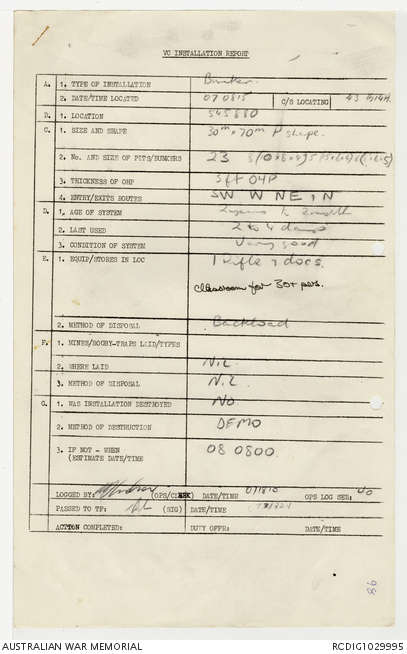 VC INSTALLATION REPORT
A. 1. TYPE OF INSTALLATION Bunker.
2. DATE/TIME LOCATED 070815 C/S LOCATING 43
B. 1. LOCATION 545680
C. 1. SIZE AND SHAPE 30m x 70m P shape.
2. No. AND SIZE OF PITS/BUNKERS 23
3. THICKNESS OF OHP 3ft OHP
4. ENTRY/EXITS ROUTES SW W NE & N
D. 1. AGE OF SYSTEM
2. LAST USED 2 to 4 days
3. CONDITION OF SYSTEM Very good
E. 1. EQUIP/STORES IN LOC 1 rifle & docs.
Classroom for 30+ pers.
2. METHOD OF DISPOSAL Backload
F. 1. MINES/BOOBY-TRAPS LAID/TYPES
2. WHERE LAID NIL
3. METHOD OF DISPOSAL NIL
G. 1. WAS INSTALLATION DESTROYED NO
2. METHOD OF DESTRUCTION DEMO
3. IF NOT - WHEN 08 0800.
(ESTIMATE DATE/TIME
LOGGED BY: (OPS/CLERK) DATE/TIME OPS LOG SER:
PASSED TO TF: (SIG) DATE/TIME
ACTION COMPLETED: DUTY OFFR: DATE/TIME
AUSTRALIAN WAR MEMORIAL RCDIG1029995